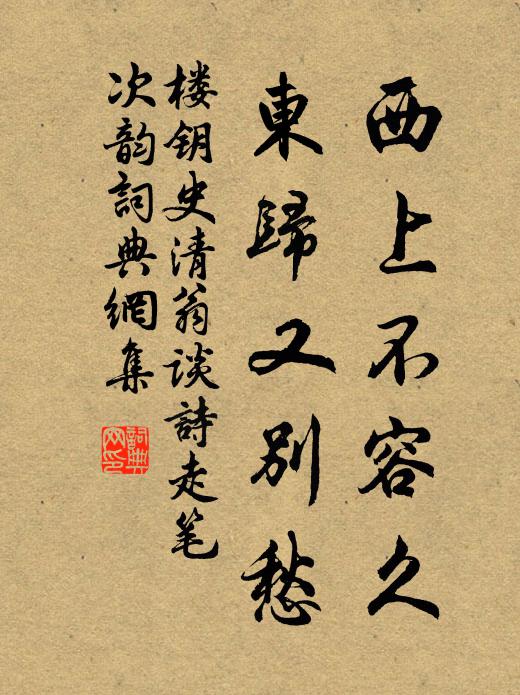 西上不容久
東歸又別愁
楼钥史清翁谈詩走笔
次韵詞典網集
詞典
网印